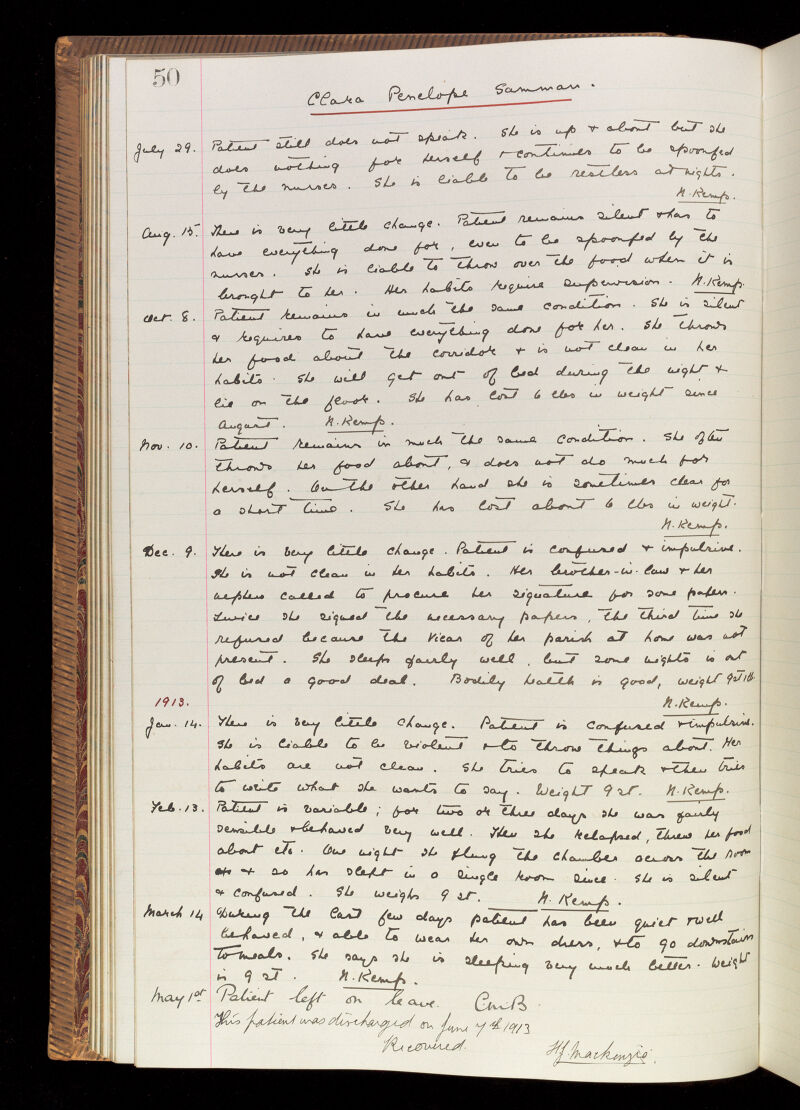 50
Clara Penelope Samman.
July 29. Patient still does not speak. She is up & about but she
does nothing for herself & continues to be spoonfed
by the nurses. She is liable to be restless at nights.
N. Kemp.
Aug. 15. There is very little change. Patient remains silent & has to
have everything done for, even to be spoonfed by the
nurses. She is liable to throw over the food when it is
brought to her. Her habits require supervision. N. Kemp.
Oct. 8. Patient remains in much the same condition. She is silent
& requires to have everything done for her. She throws
her food about the corridor & is not clean in her
habits. She will get out of bed during the night &
lie on the floor. She has lost 6 lbs in weight since
August. N. Kemp.
Nov. 10. Patient remains in much the same condition. She often
throws her food about, & does not do much for
herself. On the other hand she is sometimes clear for
a short time. She has lost about 6 lbs in weight.
N. Kemp.
Dec. 9. There is very little change. Patient is confused & impulsive.
She is not clean in her habits. Her brother-in-law & her
nephew called to procure her signature for some papers.
Twice she signed the necessary papers, the third time she
refused because the Vicar of her parish at home was not
present. She sleeps fairly well, but some nights is out
of bed a good deal. Bodily health is good, weight 9st 1lb.
N. Kemp.
1913.
Jan. 14. There is very little change. Patient is confused & impulsive.
She is liable to be violent & to throw things about. Her
habits are not clean. She tries to speak & then tries
to write what she wants to say. Weight 9 st. N. Kemp.
Feb. 13. Patient is variable; for two or three days she was fairly
sensible & behaved very well. Then she relapsed, threw her food
about etc. One night she flung the chamber across the room
& so has slept in a single room since. She is silent
& confused. She weighs 9 st. N. Kemp.
March 14 During the last few days patient has been quiet & well
behaved, & able to wear her own dress, & to go downstairs
to meals. She says she is sleeping very much better. Weight
is 9 st. N. Kemp.
May 1st Patient left on leave. CMB.
This patient was discharged on June 7th 1913
Recovered.
H.J. Mackenzie.